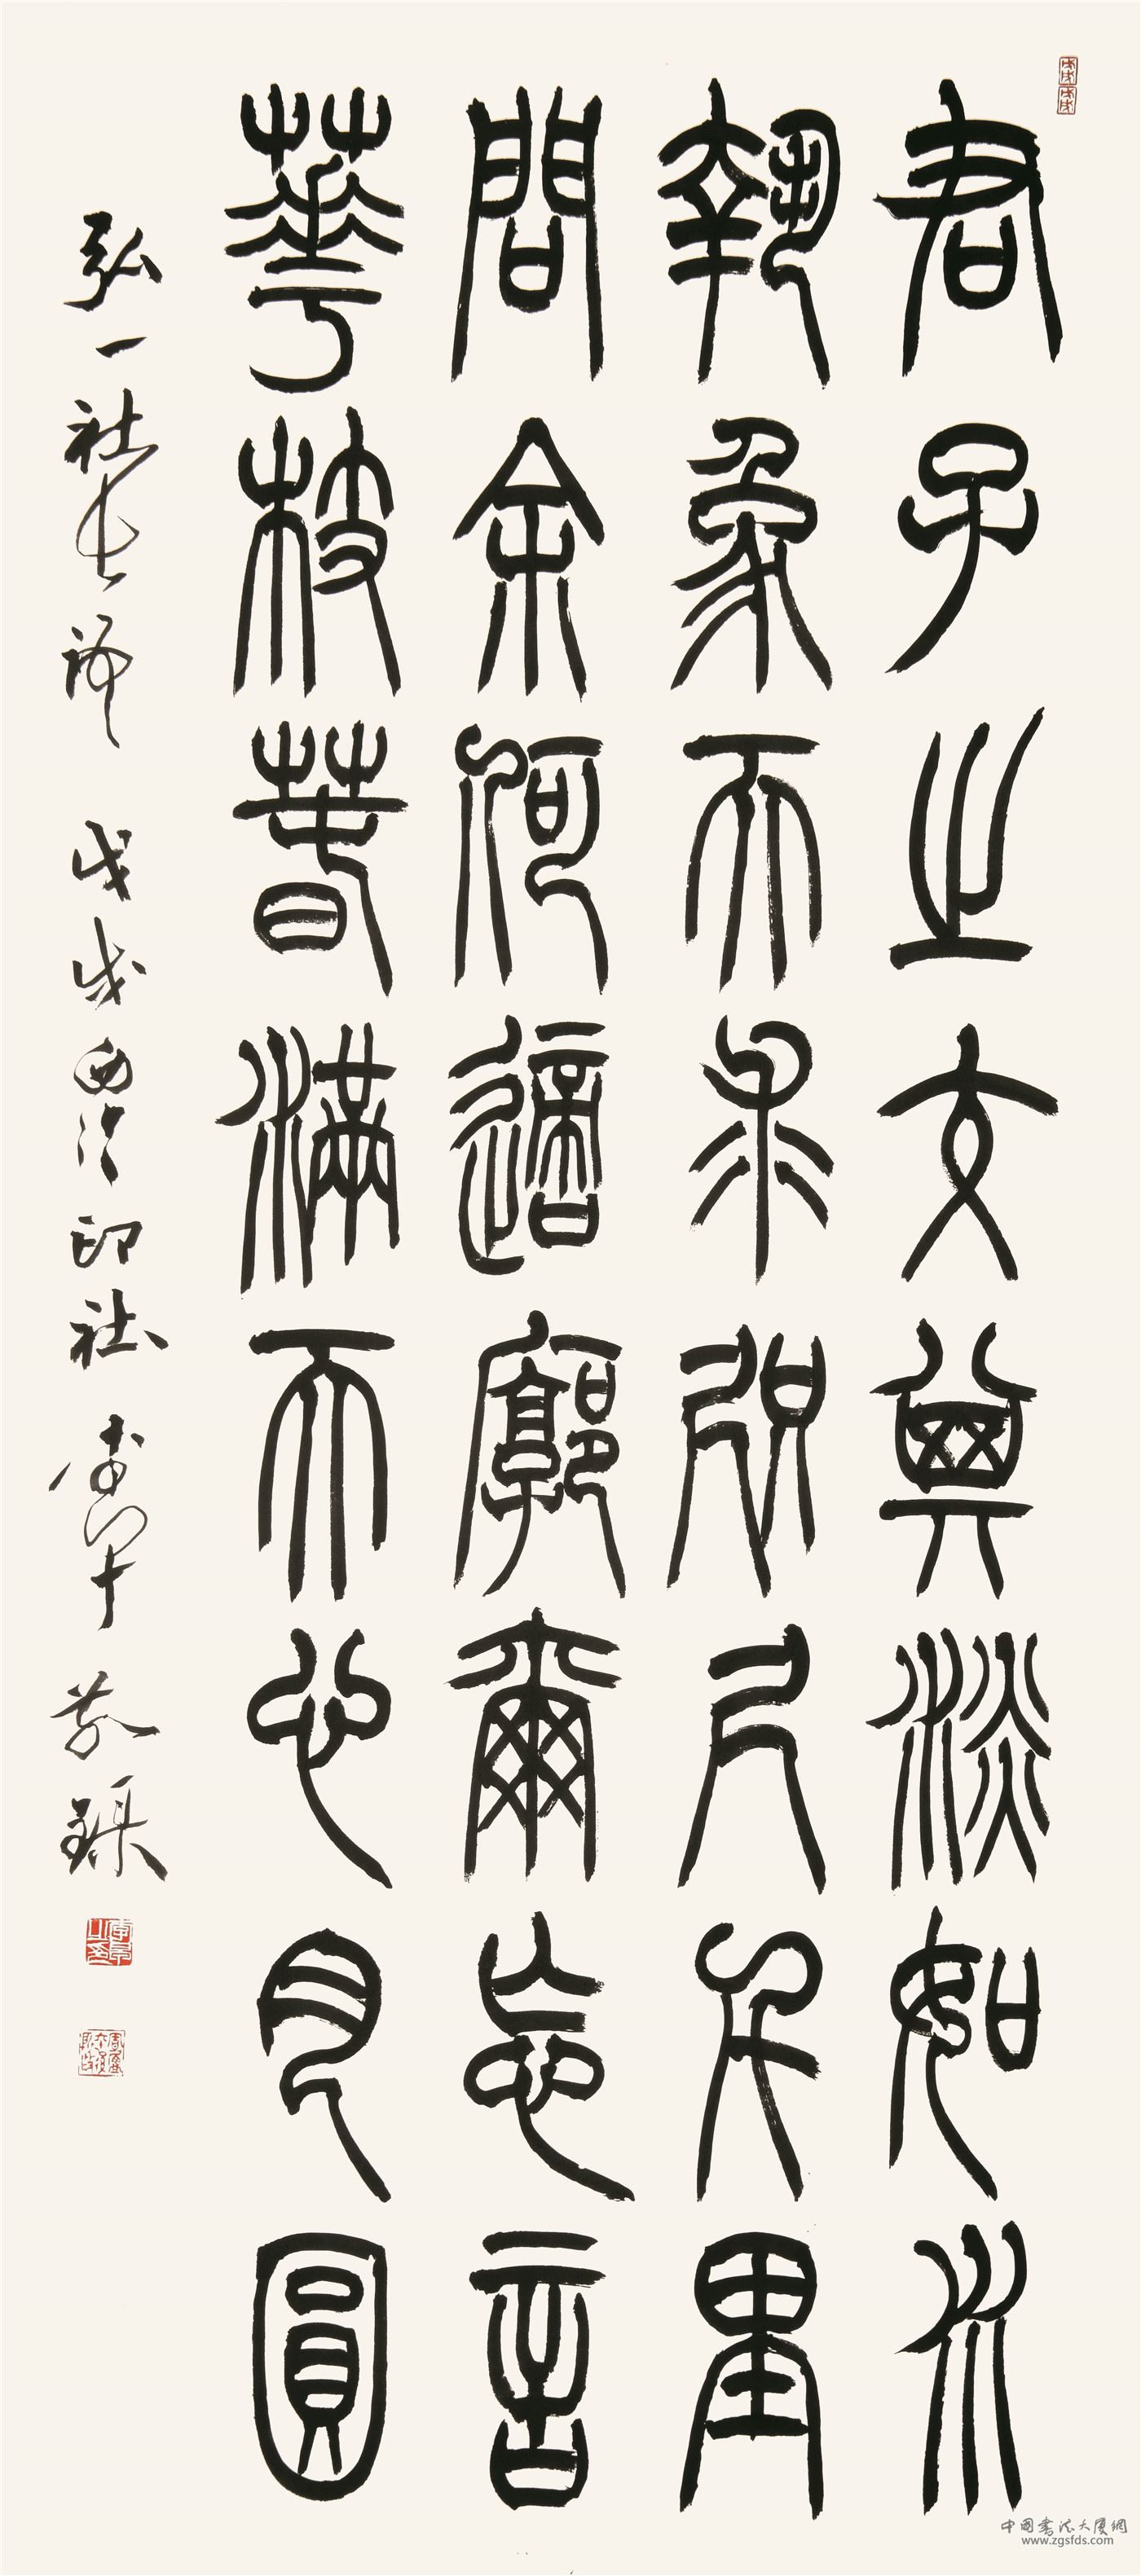 君子之交其淡如水
執象而求咫尺千里
問余何適廓爾忘言
華枝春滿天心月圓
弘一社長 戊戌西泠印社 敬録
中国書法大厦網
www.zgsfds.com